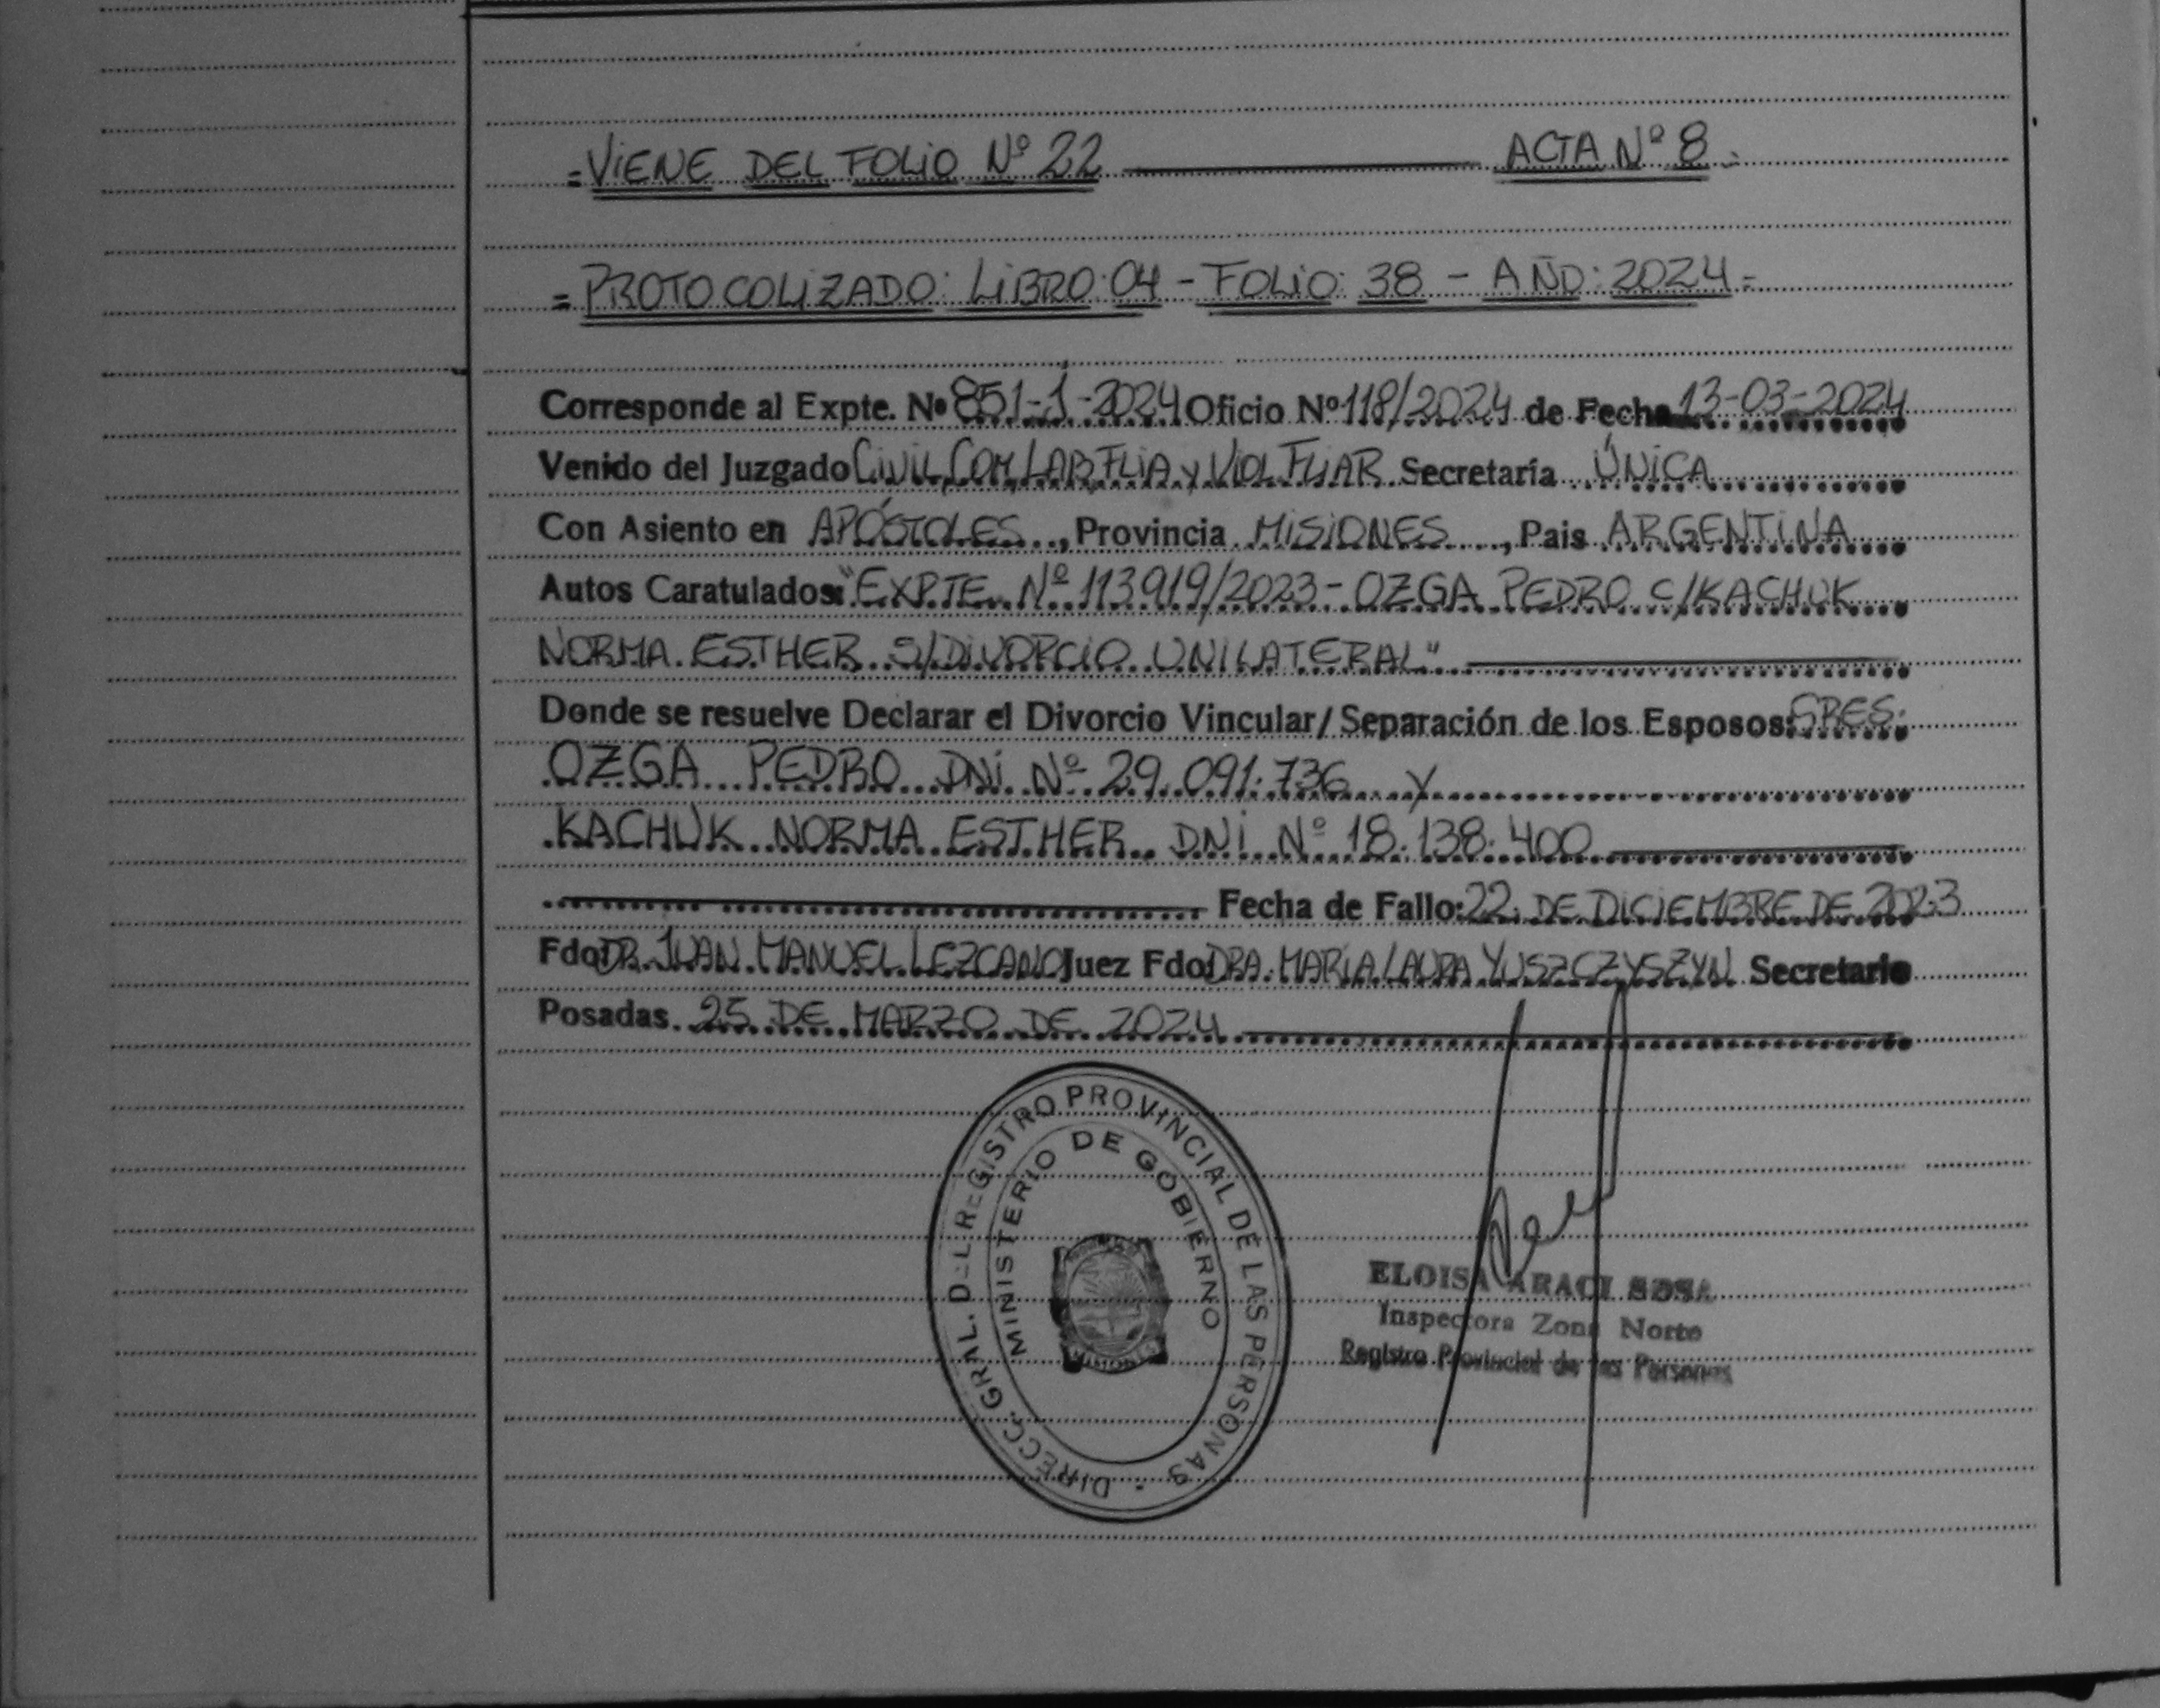 =VIENE DEL FOLIO Nº 22 ACTA Nº 8.=
=PROTOCOLIZADO: LIBRO: 04 - FOLIO: 38 - AÑO: 2024=
Corresponde al Expte. Nº 851-1-2024 Oficio Nº 118/2024 de Fecha 13-03-2024
Venido del Juzgado CIVIL, COM, LAB, FLIA y VIOL FLIAR Secretaría ÚNICA
Con Asiento en APÓSTOLES, Provincia MISIONES, Pais ARGENTINA
Autos Caratulados: "EXPTE Nº 113919/2023 - OZGA PEDRO C/KACHUK
NORMA ESTHER S/DIVORCIO UNILATERAL"
Donde se resuelve Declarar el Divorcio Vincular/Separación de los Esposos: SRES.
OZGA PEDRO DNI Nº 29.091.736 y
KACHUK NORMA ESTHER DNI Nº 18.138.400
Fecha de Fallo: 22 DE DICIEMBRE DE 2023
Fdo: DR. JUAN MANUEL LEZCANO Juez Fdo: DRA. MARIA LAURA YUSZCZYSZYN Secretario
Posadas 25 DE MARZO DE 2024
DIRECC. GRAL. DEL REGISTRO PROVINCIAL DE LAS PERSONAS
MINISTERIO DE GOBIERNO
ELOISA ARACI SOSA
Inspectora Zona Norte
Registro Provincial de las Personas